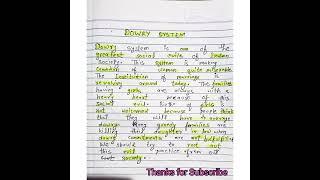 DOWRY SYSTEM
Dowry system is one of the
greatest social evils of Indian
Society. This system is making
condition of women quite miserable.
The Institution of marriage is
revolving around today. The families
having girls are always with a
heavy heart because of this
social evil. Birth of girls is
not welcomed because people thinks
that they will have to arrange
dowry. Many greedy families are
killing this daughter in law when
dowry commitments are not fulfilled
We should try to root out
this evil practice from our
society.
Thanks for Subscribe